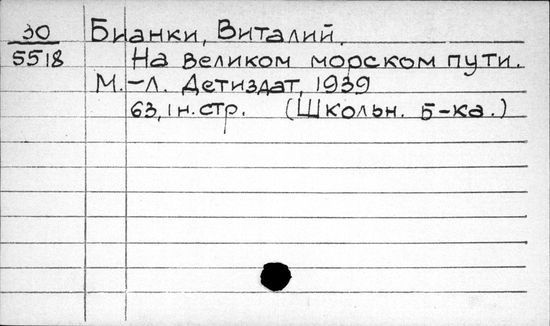 30 Бианки, Виталий.
5518 На великом морском пути.
М.-Л. Детиздат, 1939
63, 1 н. стр. (Школьн. б-ка.)